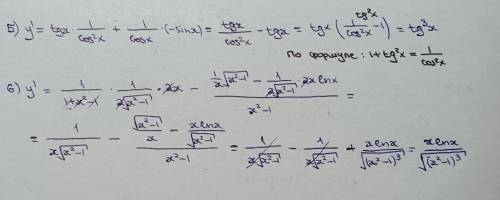 5) y' = tgx · 1/cos²x + 1/cosx · (-sinx) = tgx/cos²x - tgx = tgx (1/cos²x - 1) = tg³x
tg²x
по формуле : 1 + tg²x = 1/cos²x
6) y' = 1/(1+x²-1) · 1/(2√(x²-1)) · 2x - (1/x √(x²-1) - 1/(2√(x²-1)) · 2x lnx)/(x²-1) =
= 1/(x√(x²-1)) - (√(x²-1)/x - xlnx/√(x²-1))/(x²-1) = 1/(x√(x²-1)) - 1/(x√(x²-1)) + xlnx/√((x²-1)³) = xlnx/√((x²-1)³)